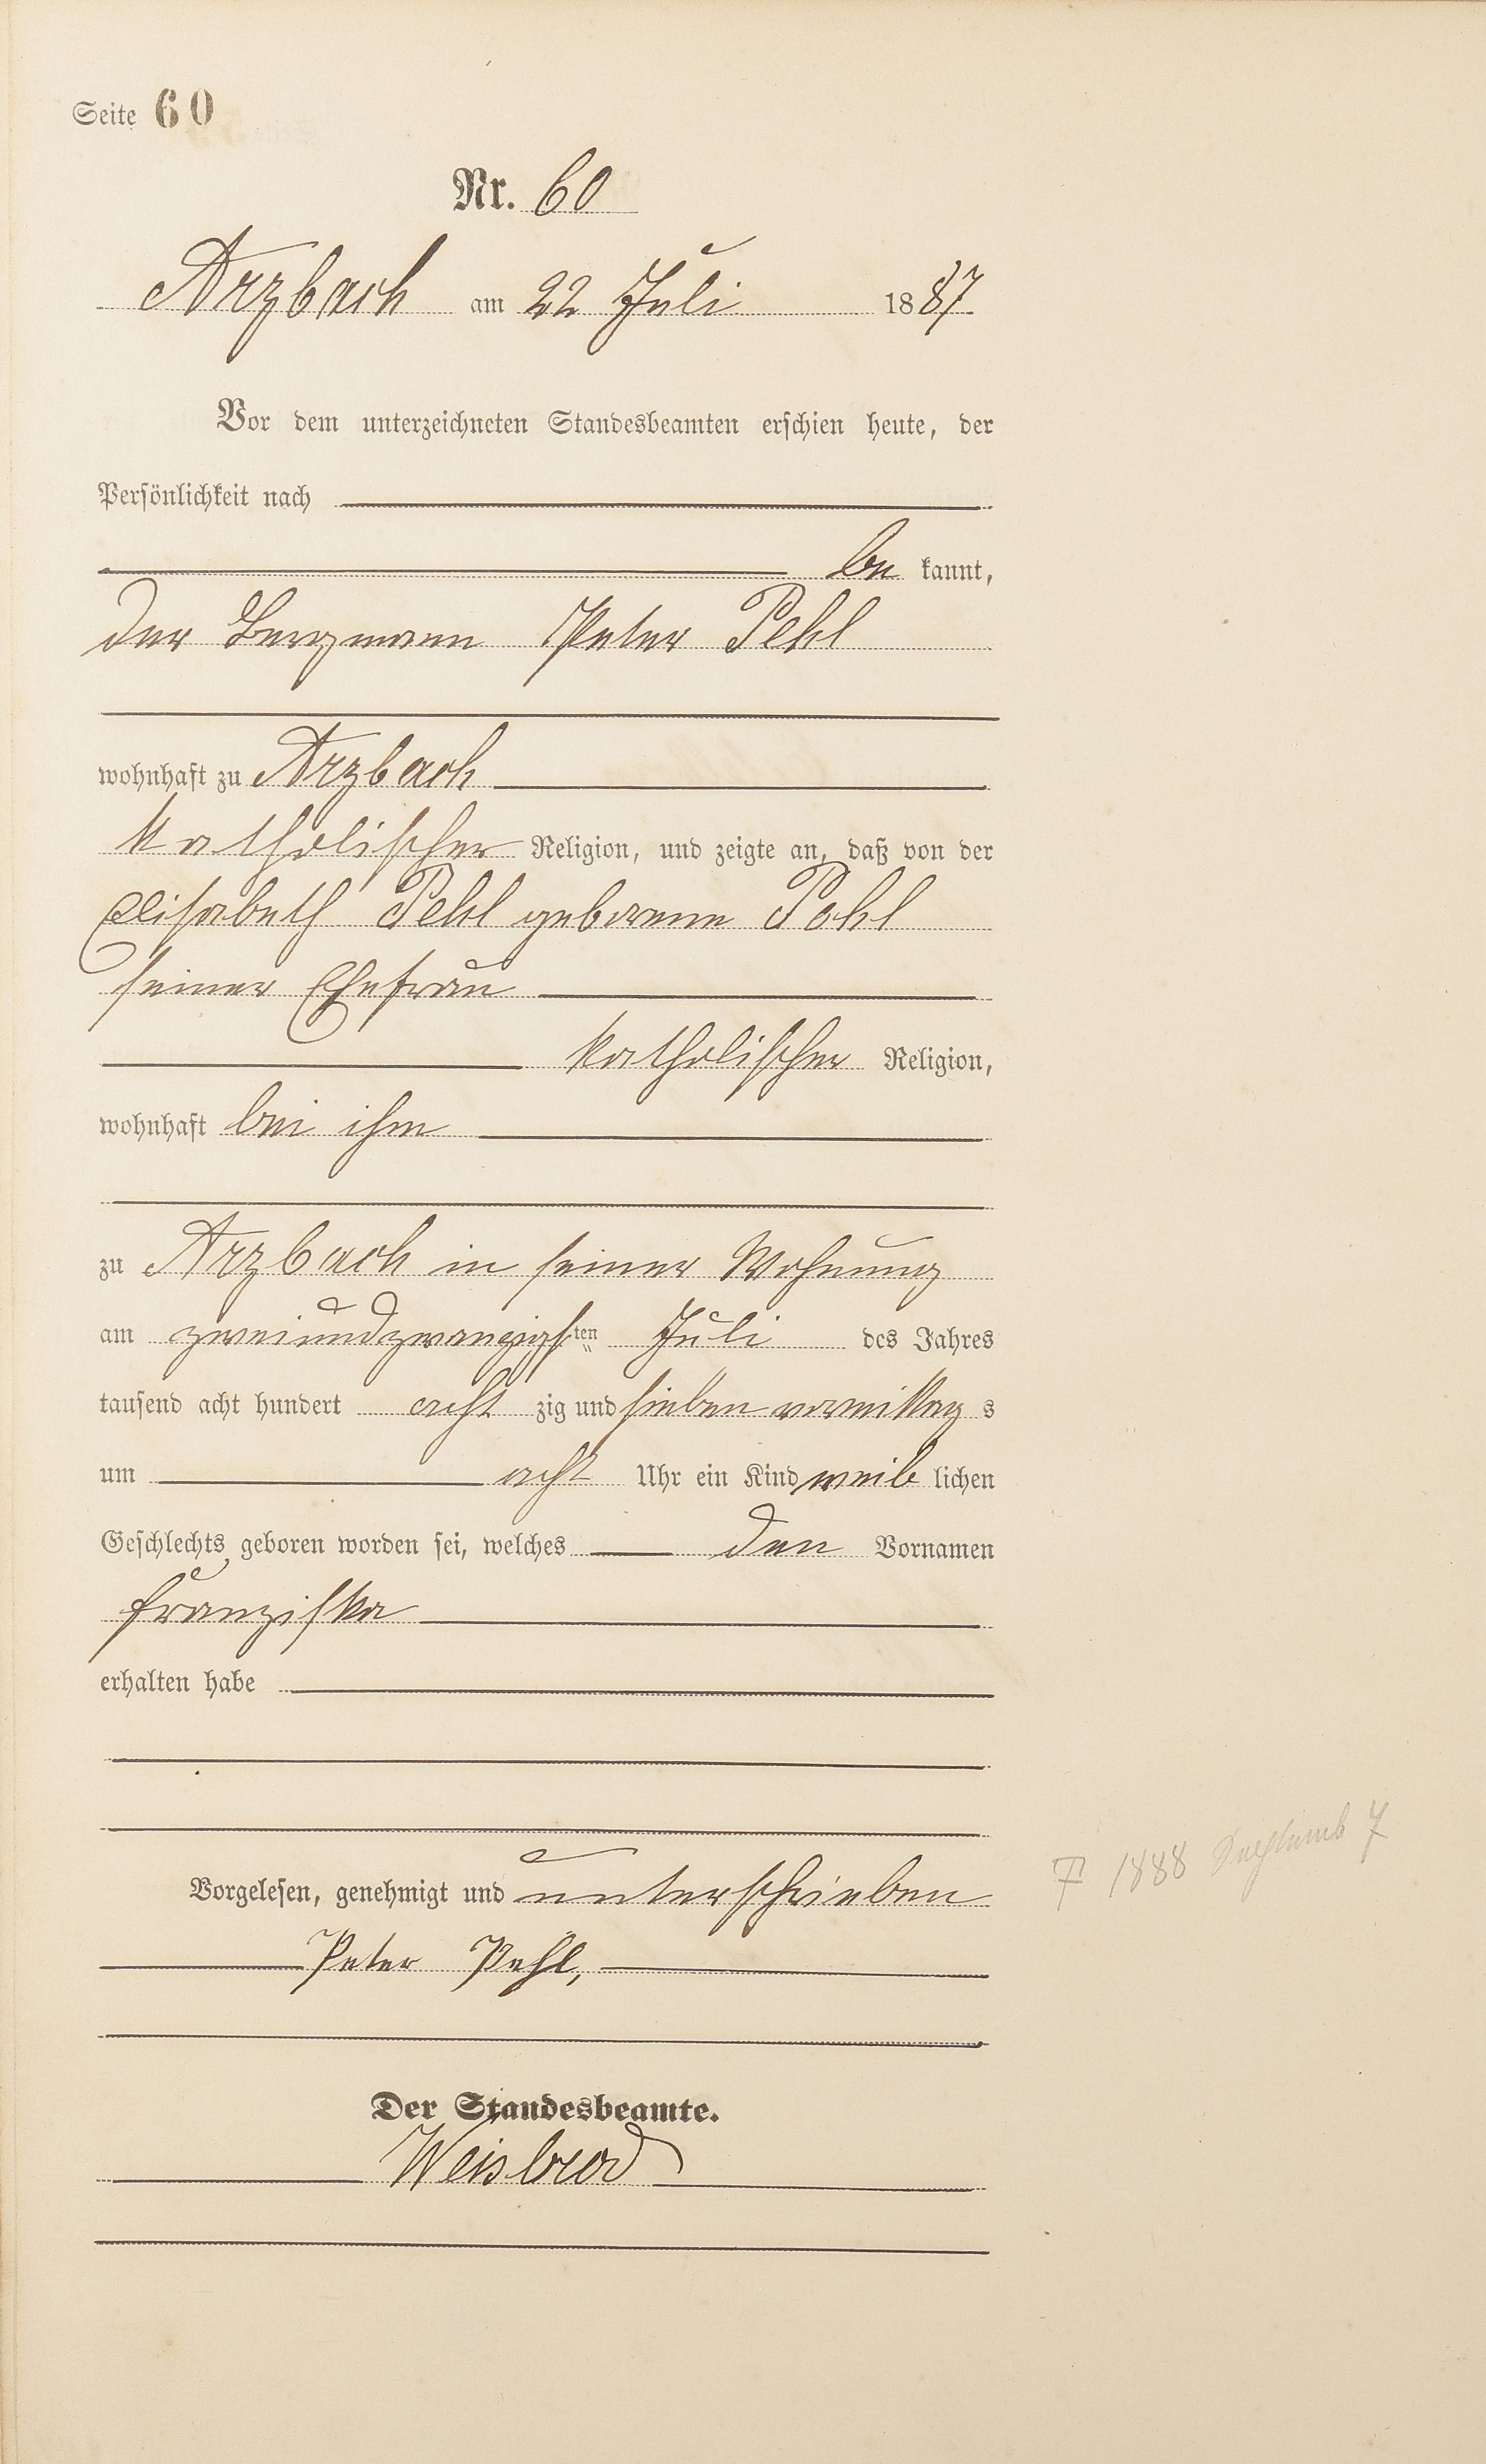 Seite 60
Nr. 60
Arzbach am 22 Juli 1887
Vor dem unterzeichneten Standesbeamten erschien heute, der
Persönlichkeit nach
be kannt,
der Bergmann Peter Pehl
wohnhaft zu Arzbach
katholischer Religion, und zeigte an, daß von der
Elisabeth Pehl geborene Pohl
seiner Ehefrau
katholischer Religion,
wohnhaft bei ihm
zu Arzbach in seiner Wohnung
am zweiundzwanzigsten Juli des Jahres
tausend acht hundert acht zig und sieben vormittag s
um acht Uhr ein Kind weib lichen
Geschlechts geboren worden sei, welches den Vornamen
Franziska
erhalten habe
Vorgelesen, genehmigt und unterschrieben
Peter Pehl,
† 1888 7
Der Standesbeamte.
Weisbrod